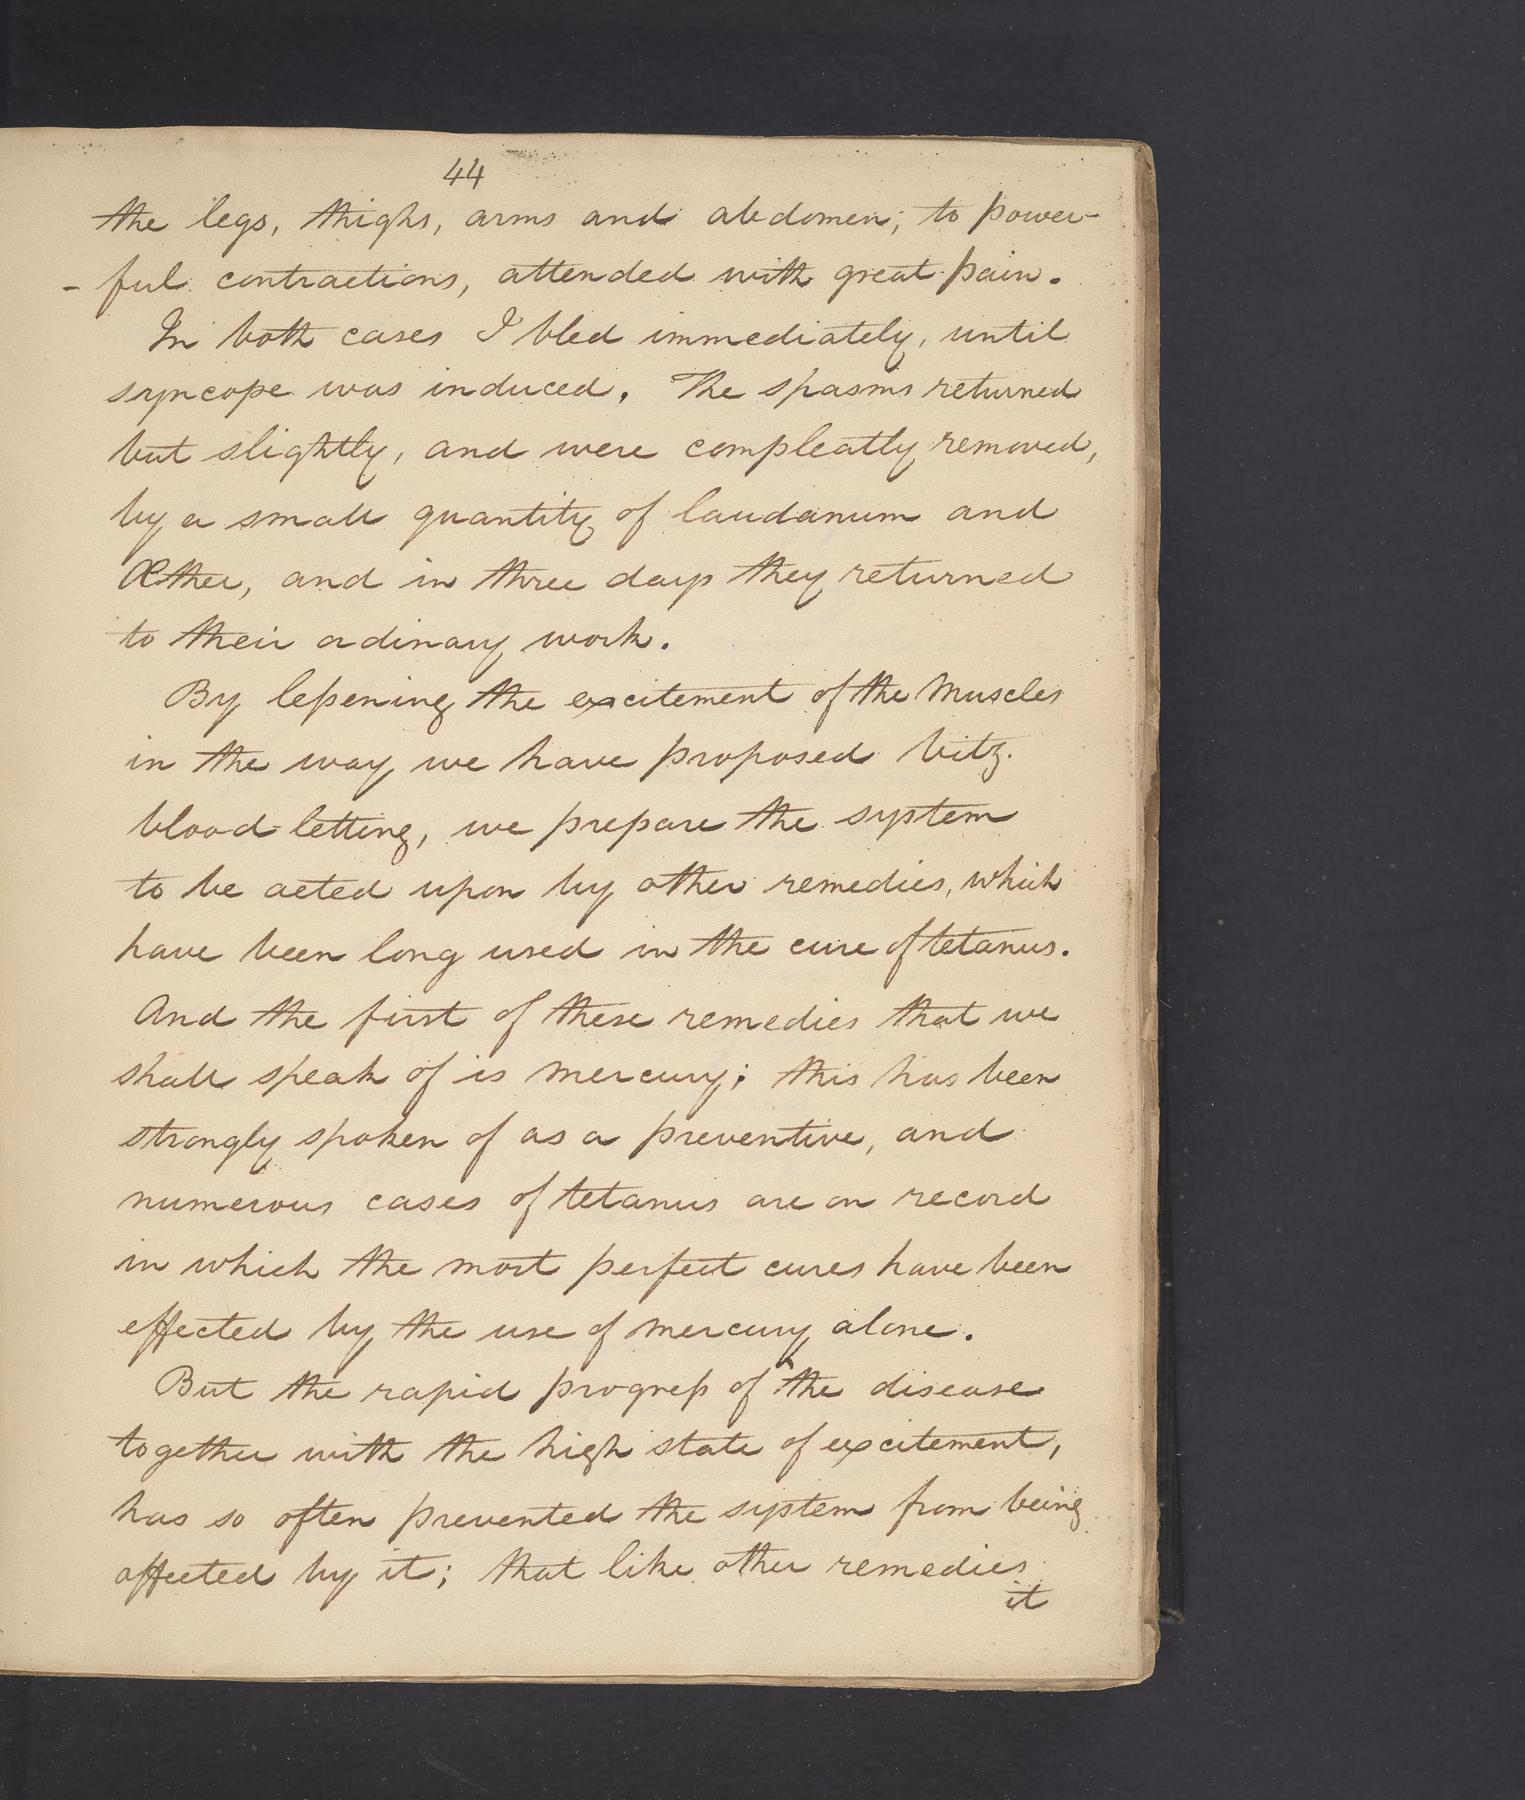 44
the legs, thighs, arms and abdomen; to power-
- ful contractions, attended with great pain.
In both cases I bled immediately, until
syncope was induced. The spasms returned
but slightly, and were compleatly removed,
by a small quantity of laudanum and
Æther, and in three days they returned
to their ordinary work.
By leſsening the excitement of the Muscles
in the way we have proposed vitz.
blood-letting, we prepare the system
to be acted upon by other remedies, which
have been long used in the cure of tetanus.
And the first of these remedies that we
shall speak of is mercury; this has been
strongly spoken of as a preventive, and
numerous cases of tetanus are on record
in which the most perfect cures have been
effected by the use of mercury alone.
But the rapid progreſs of the disease
together with the high state of excitement,
has so often prevented the system from being
affected by it; that like other remedies
it